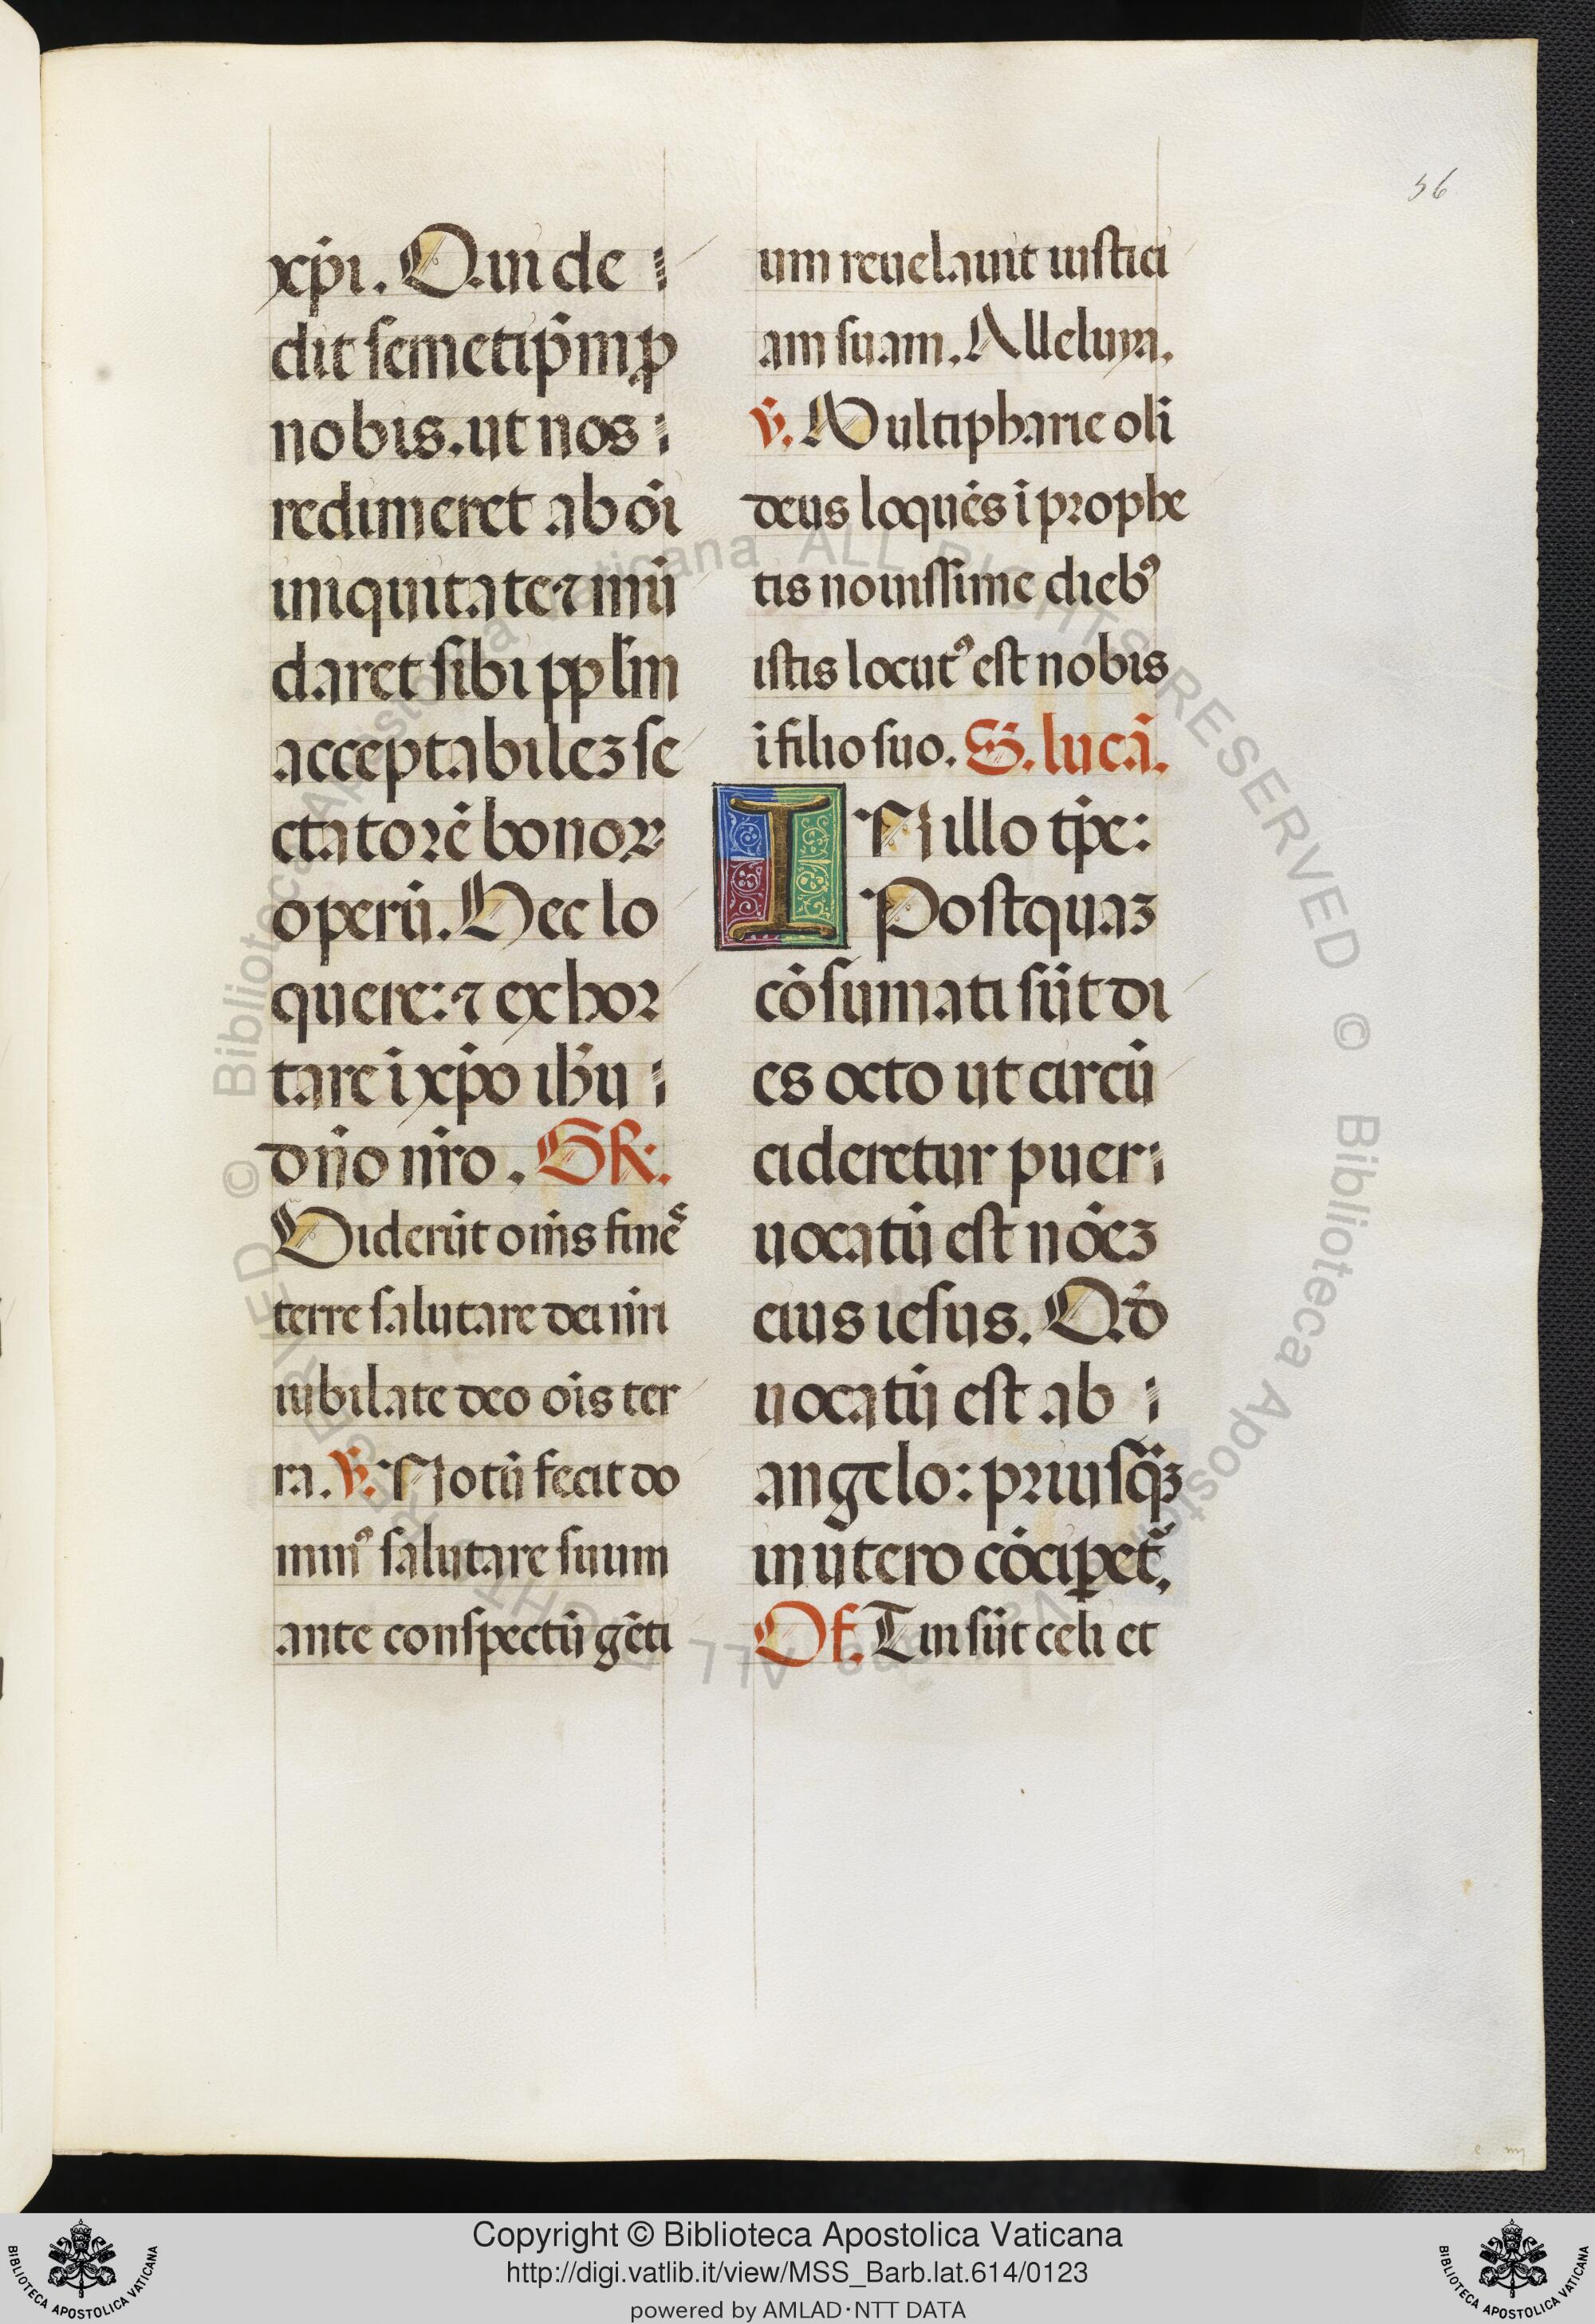 56
xp̄i. Qui de
dit semetip̄m ꝓ
nobis. ut nos
redimeret ab oī
iniquitate ⁊ mū
daret sibi pp̄lm
acceptabileꝫ se
ctatorē bonoꝝ
operū. Hec lo
quere: ⁊ exhor
tare ī xp̄o ih̄u
dn̄o nr̄o. GR.
Viderūt om̄s finēs
terre salutare dei nr̄i
iubilate deo oīs ter
ra. ℣. Notū fecit do
minꝰ salutare suum
ante conspectū gēti
um reuelauit iustici
am suam. Alleluya.
℣. Multipharie oli
deus loquēs ī prophe
tis nouissime diebꝰ
istis locutꝰ est nobis
ī filio suo. S. lucā.
IN illo tp̄e:
Postquaꝫ
cōsumati sūt di
es octo ut circū
cideretur puer
uocatū est nōeꝫ
eius iesus. Qd̄
uocatū est ab
angelo: priusq̄ꝫ
in utero cōciꝑet̄.
Of. Tui sūt celi et
e iiij
© Biblioteca Apostolica Vaticana ALL RIGHTS RESERVED © Biblioteca Apostolica Vaticana ALL RIGHTS RESERVED
BIBLIOTECA APOSTOLICA VATICANA
Copyright © Biblioteca Apostolica Vaticana
http://digi.vatlib.it/view/MSS_Barb.lat.614/0123
powered by AMLAD·NTT DATA
BIBLIOTECA APOSTOLICA VATICANA